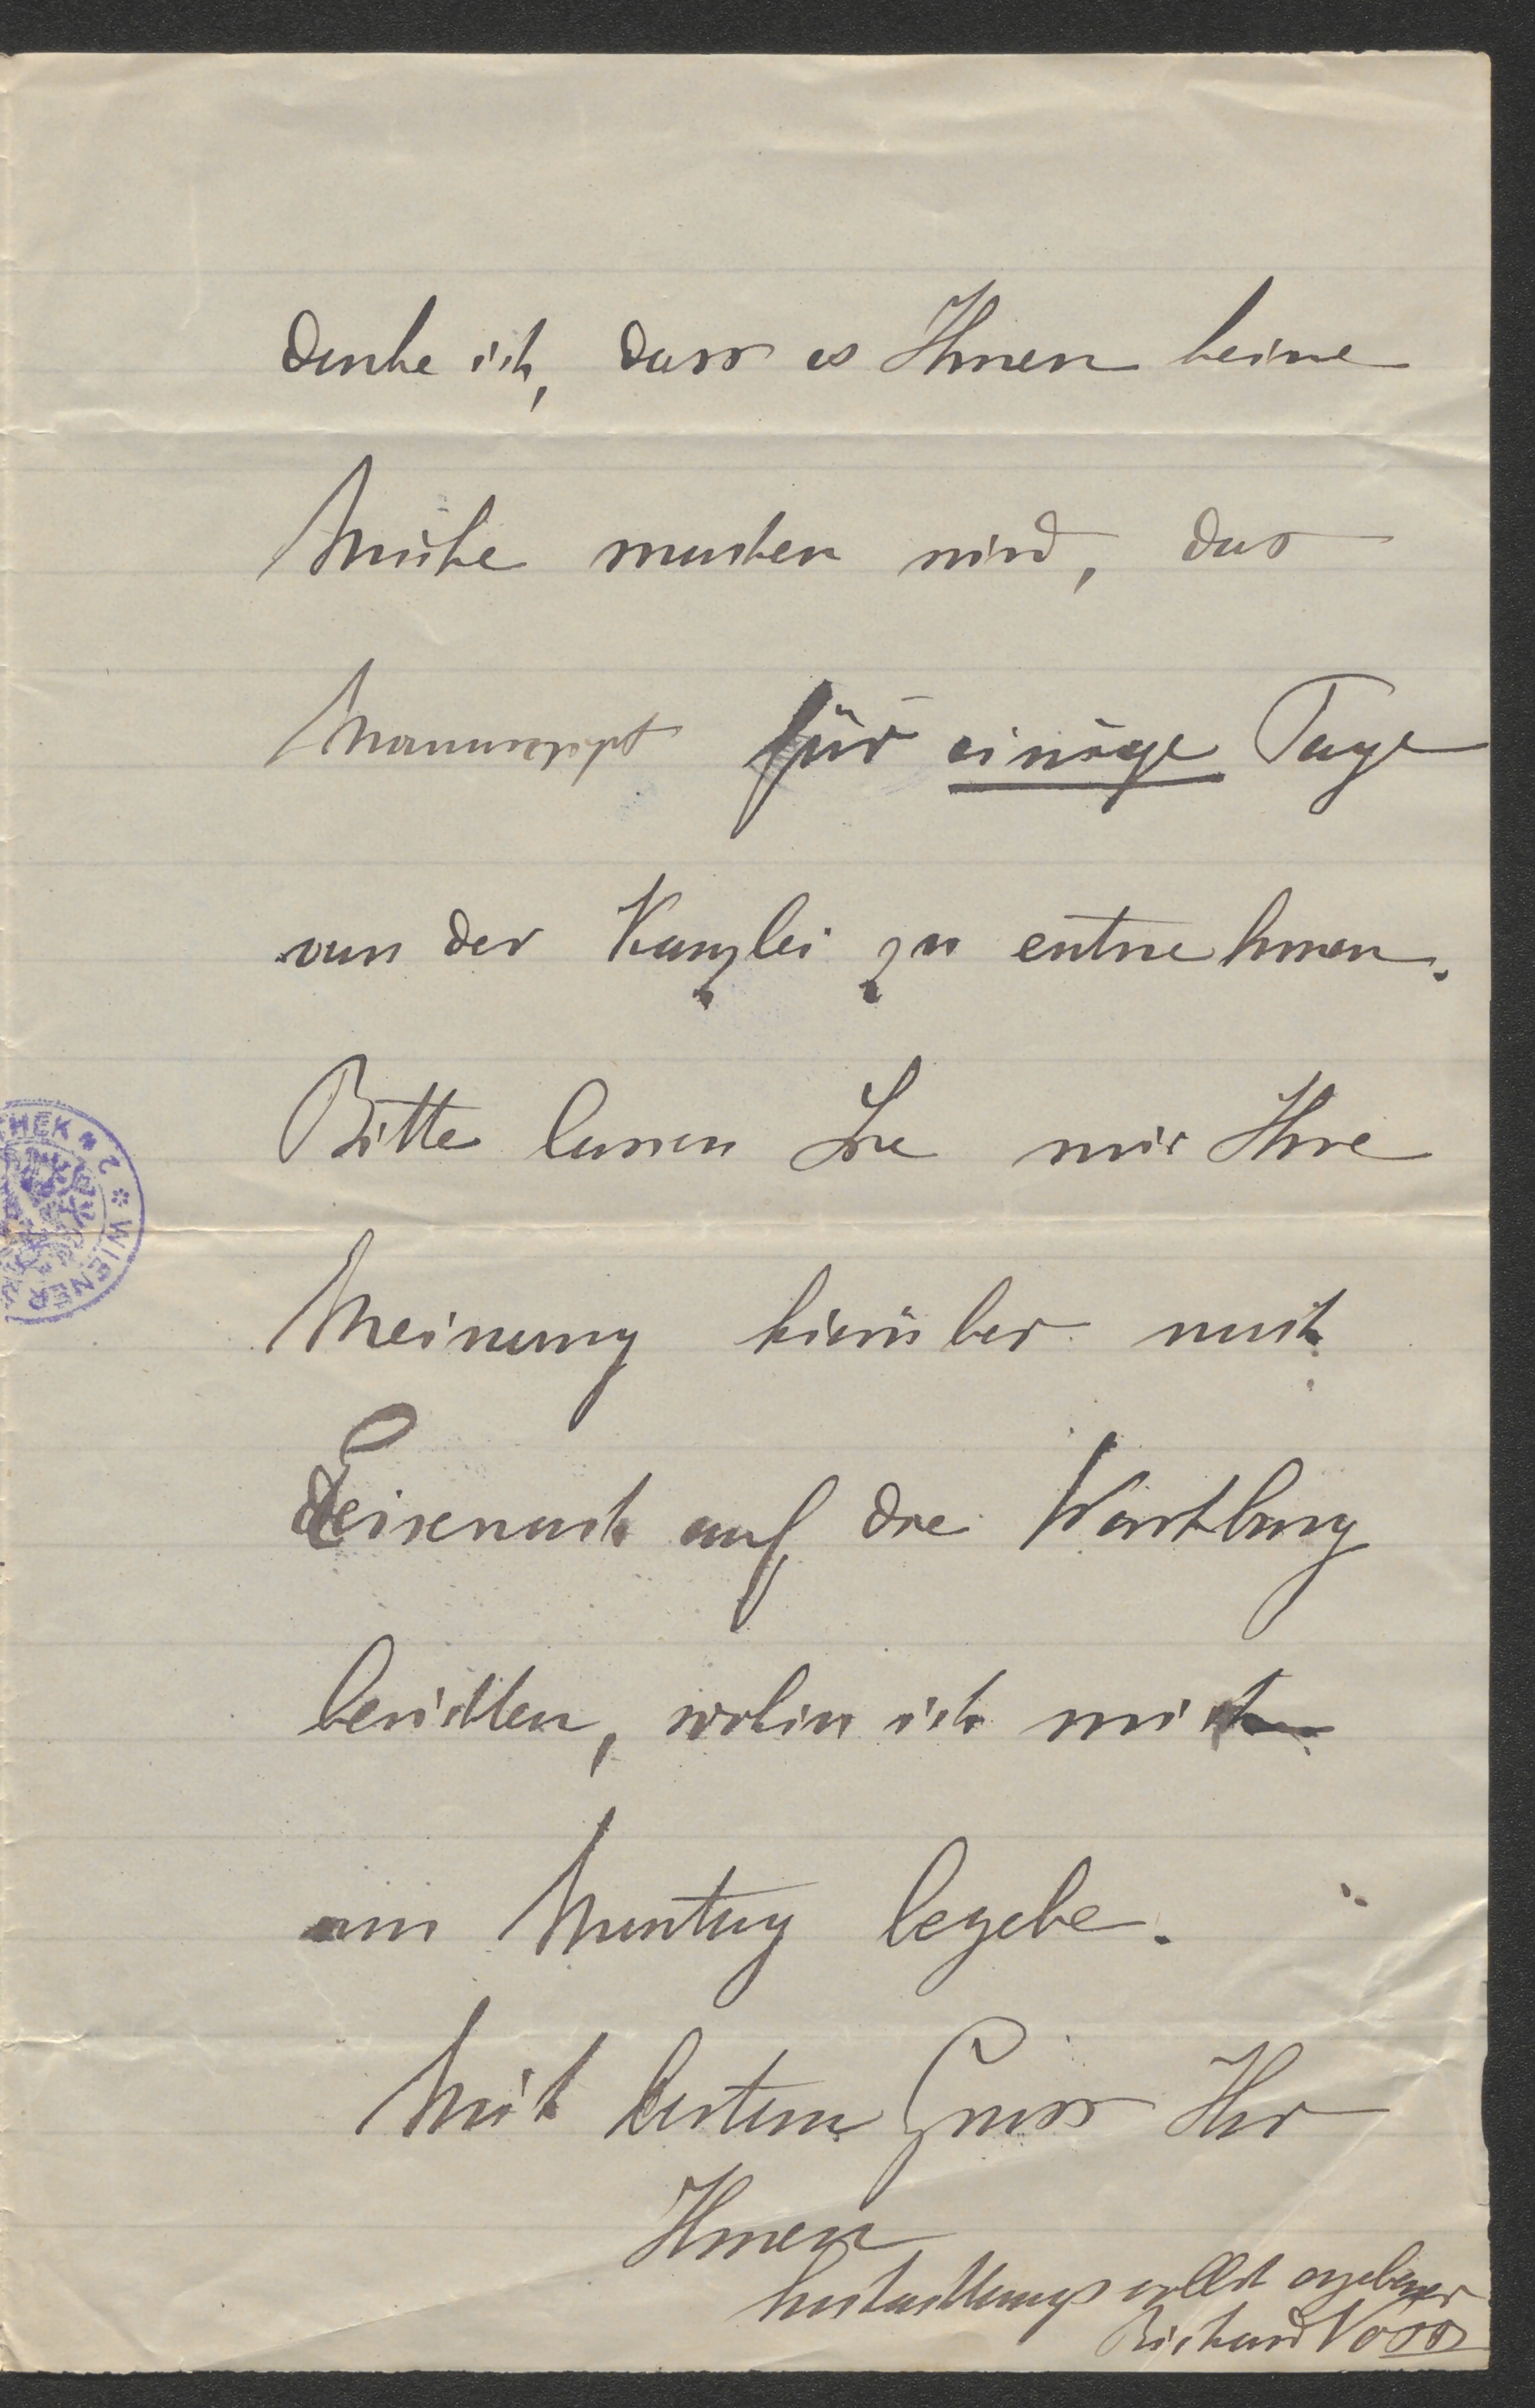 denke ich, dass es Ihnen keine
Mühe machen wird, das
Manuscript für einige Tage
von der Kanzlei zu entnehmen.
Bitte lassen Sie mir Ihre
Meinung hierüber nach
Eisenach auf die Wartburg
berichten, wohin ich mich
am Montag begebe.
Mit bestem Gruss Ihr
Ihnen
hochachtungsvollst ergebener
Richard Voss
THEK * 2 * WIENER